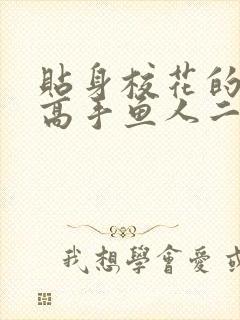 貼身校花的
高手鱼人二
我想學會愛或